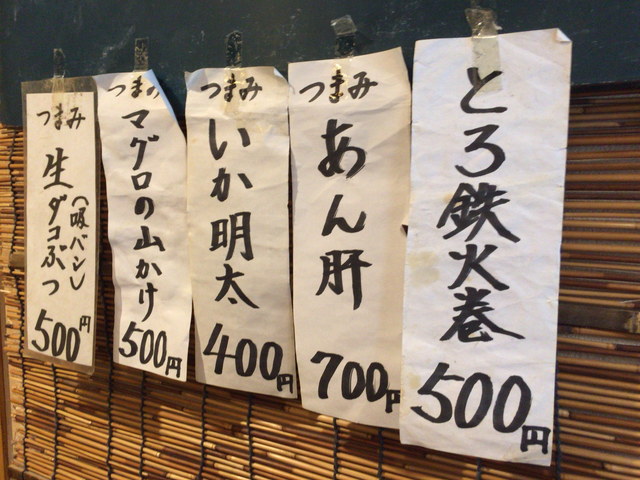 とろ鉄火巻
500円
つまみ
あん肝
700円
つまみ
いか明太
400円
つまみ
マグロの山かけ
500円
つまみ
生ダコぶつ
(吸バン)
500円